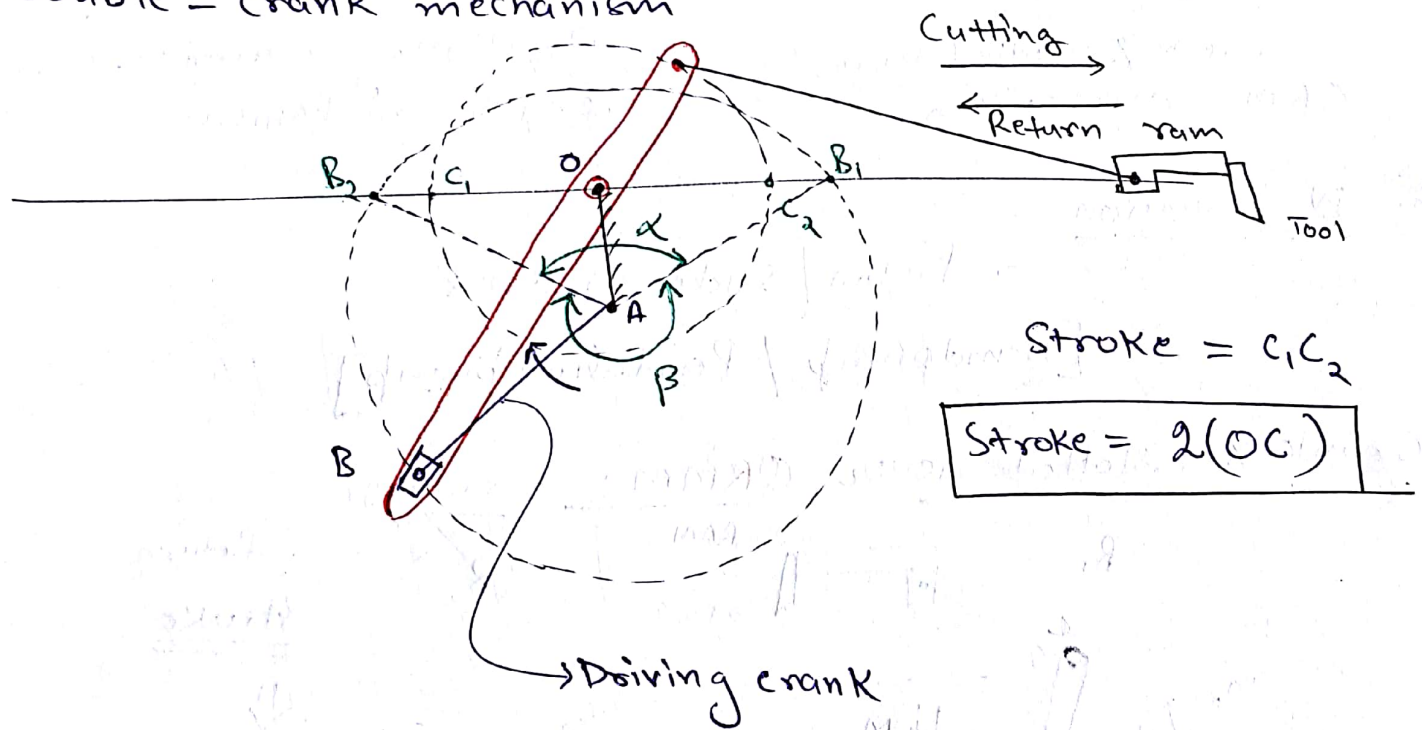 crank mechanism
Cutting
Return ram
Tool
B₂ C₁ O C₂ B₁
α
A
β
B
Stroke = C₁C₂
Stroke = 2(OC)
Driving crank